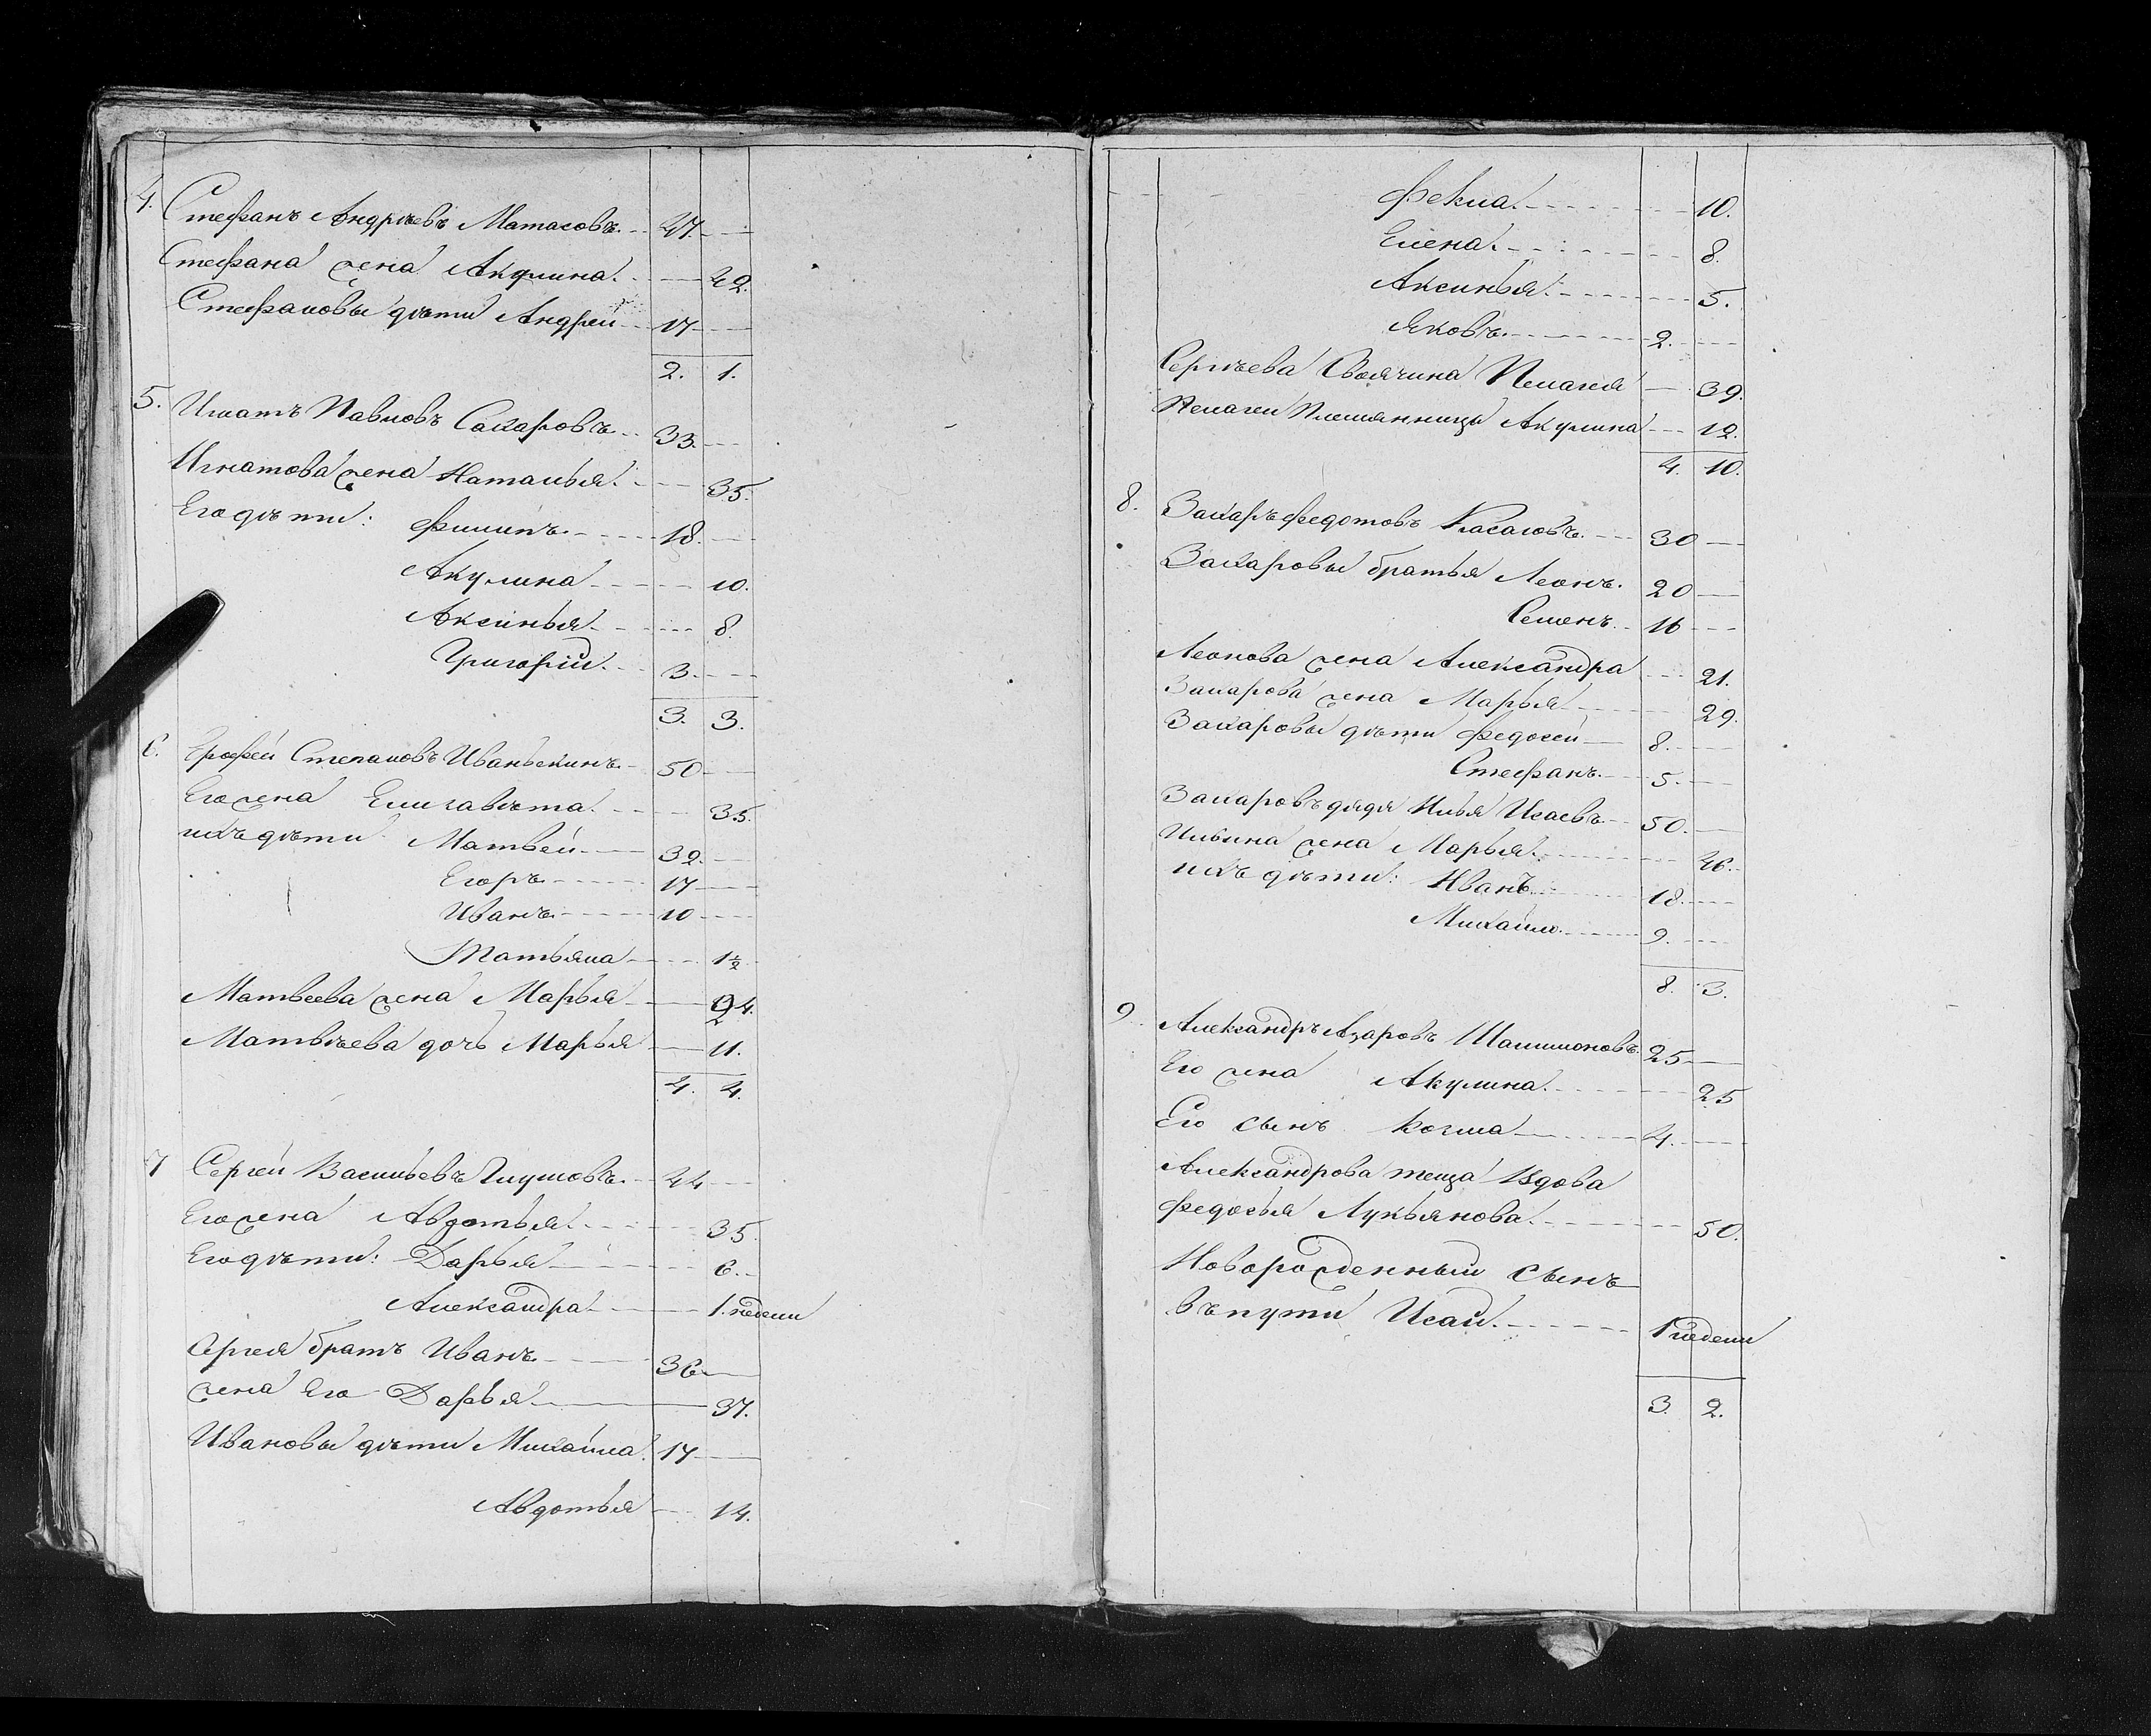 4. Стефанъ Андрѣевъ Матасовъ. 47.
Стефана жена Акулина. 42.
Стефановы дѣти Андрей 17
2. 1.
5. Игнатъ Павловъ Сахаровъ. 33.
Игнатова жена Наталья. 35.
Его дѣти: Филипъ. 18.
Акулина 10.
Аксинья 8.
Григорій. 3.
3. 3.
6. Ерофей Степановъ Иванькинъ. 50
Его жена Елизавѣта. 35.
ихъ дѣти Матвей 32.
Егоръ. 17
Иванъ. 10
Татьяна 1½
Матвеева жена Марья 24.
Матвѣева дочь Марья 11.
4. 4.
7 Сергей Васильевъ Глуховъ. 44
Его жена Авдотья. 35.
Его дѣти: Дарья 6.
Александра 1. недели
Сергея братъ Иванъ. 36
жена Его Дарья 37.
Ивановы дѣти Михайла. 17
Авдотья 14.
Фекла. 10.
Елена. 8.
Аксинья. 5.
Яковъ. 2.
Сергѣева Своячина Пелагея 39.
Пелагеи Племянница Акулина 12.
4. 10.
8. Захаръ Федотовъ 30
Захаровы братья Леонъ. 20
Семенъ. 16
Леонова жена Александра 21.
Захарова жена Марья 29.
Захаровы дѣти Федосей 8.
Стефанъ. 5.
Захаровъ дядя Илья Исаевъ 50.
Ильина жена Марья. 46.
ихъ дѣти: Иванъ 18.
Михайло. 9.
8. 3.
9. Александръ Азаровъ 25
Его жена Акулина. 25
Его сынъ Козма 4.
Александрова теща Вдова
Федосья Лукьянова. 50.
Новорожденный сынъ
въ пути Исай. 1 недели
3. 2.